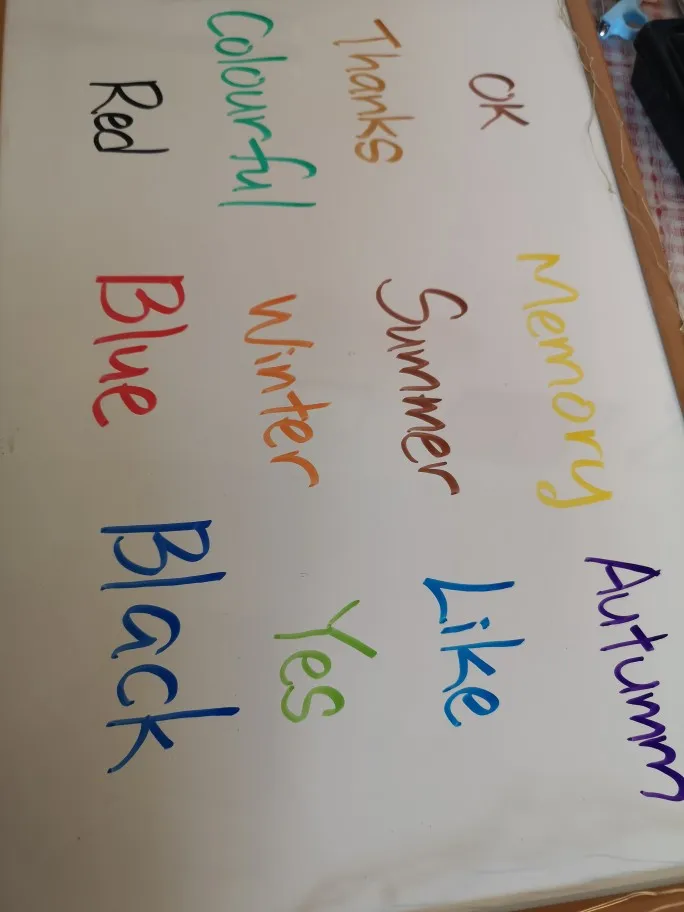 OK Memory Autumn
Thanks Summer Like
Colourful Winter Yes
Red Blue Black